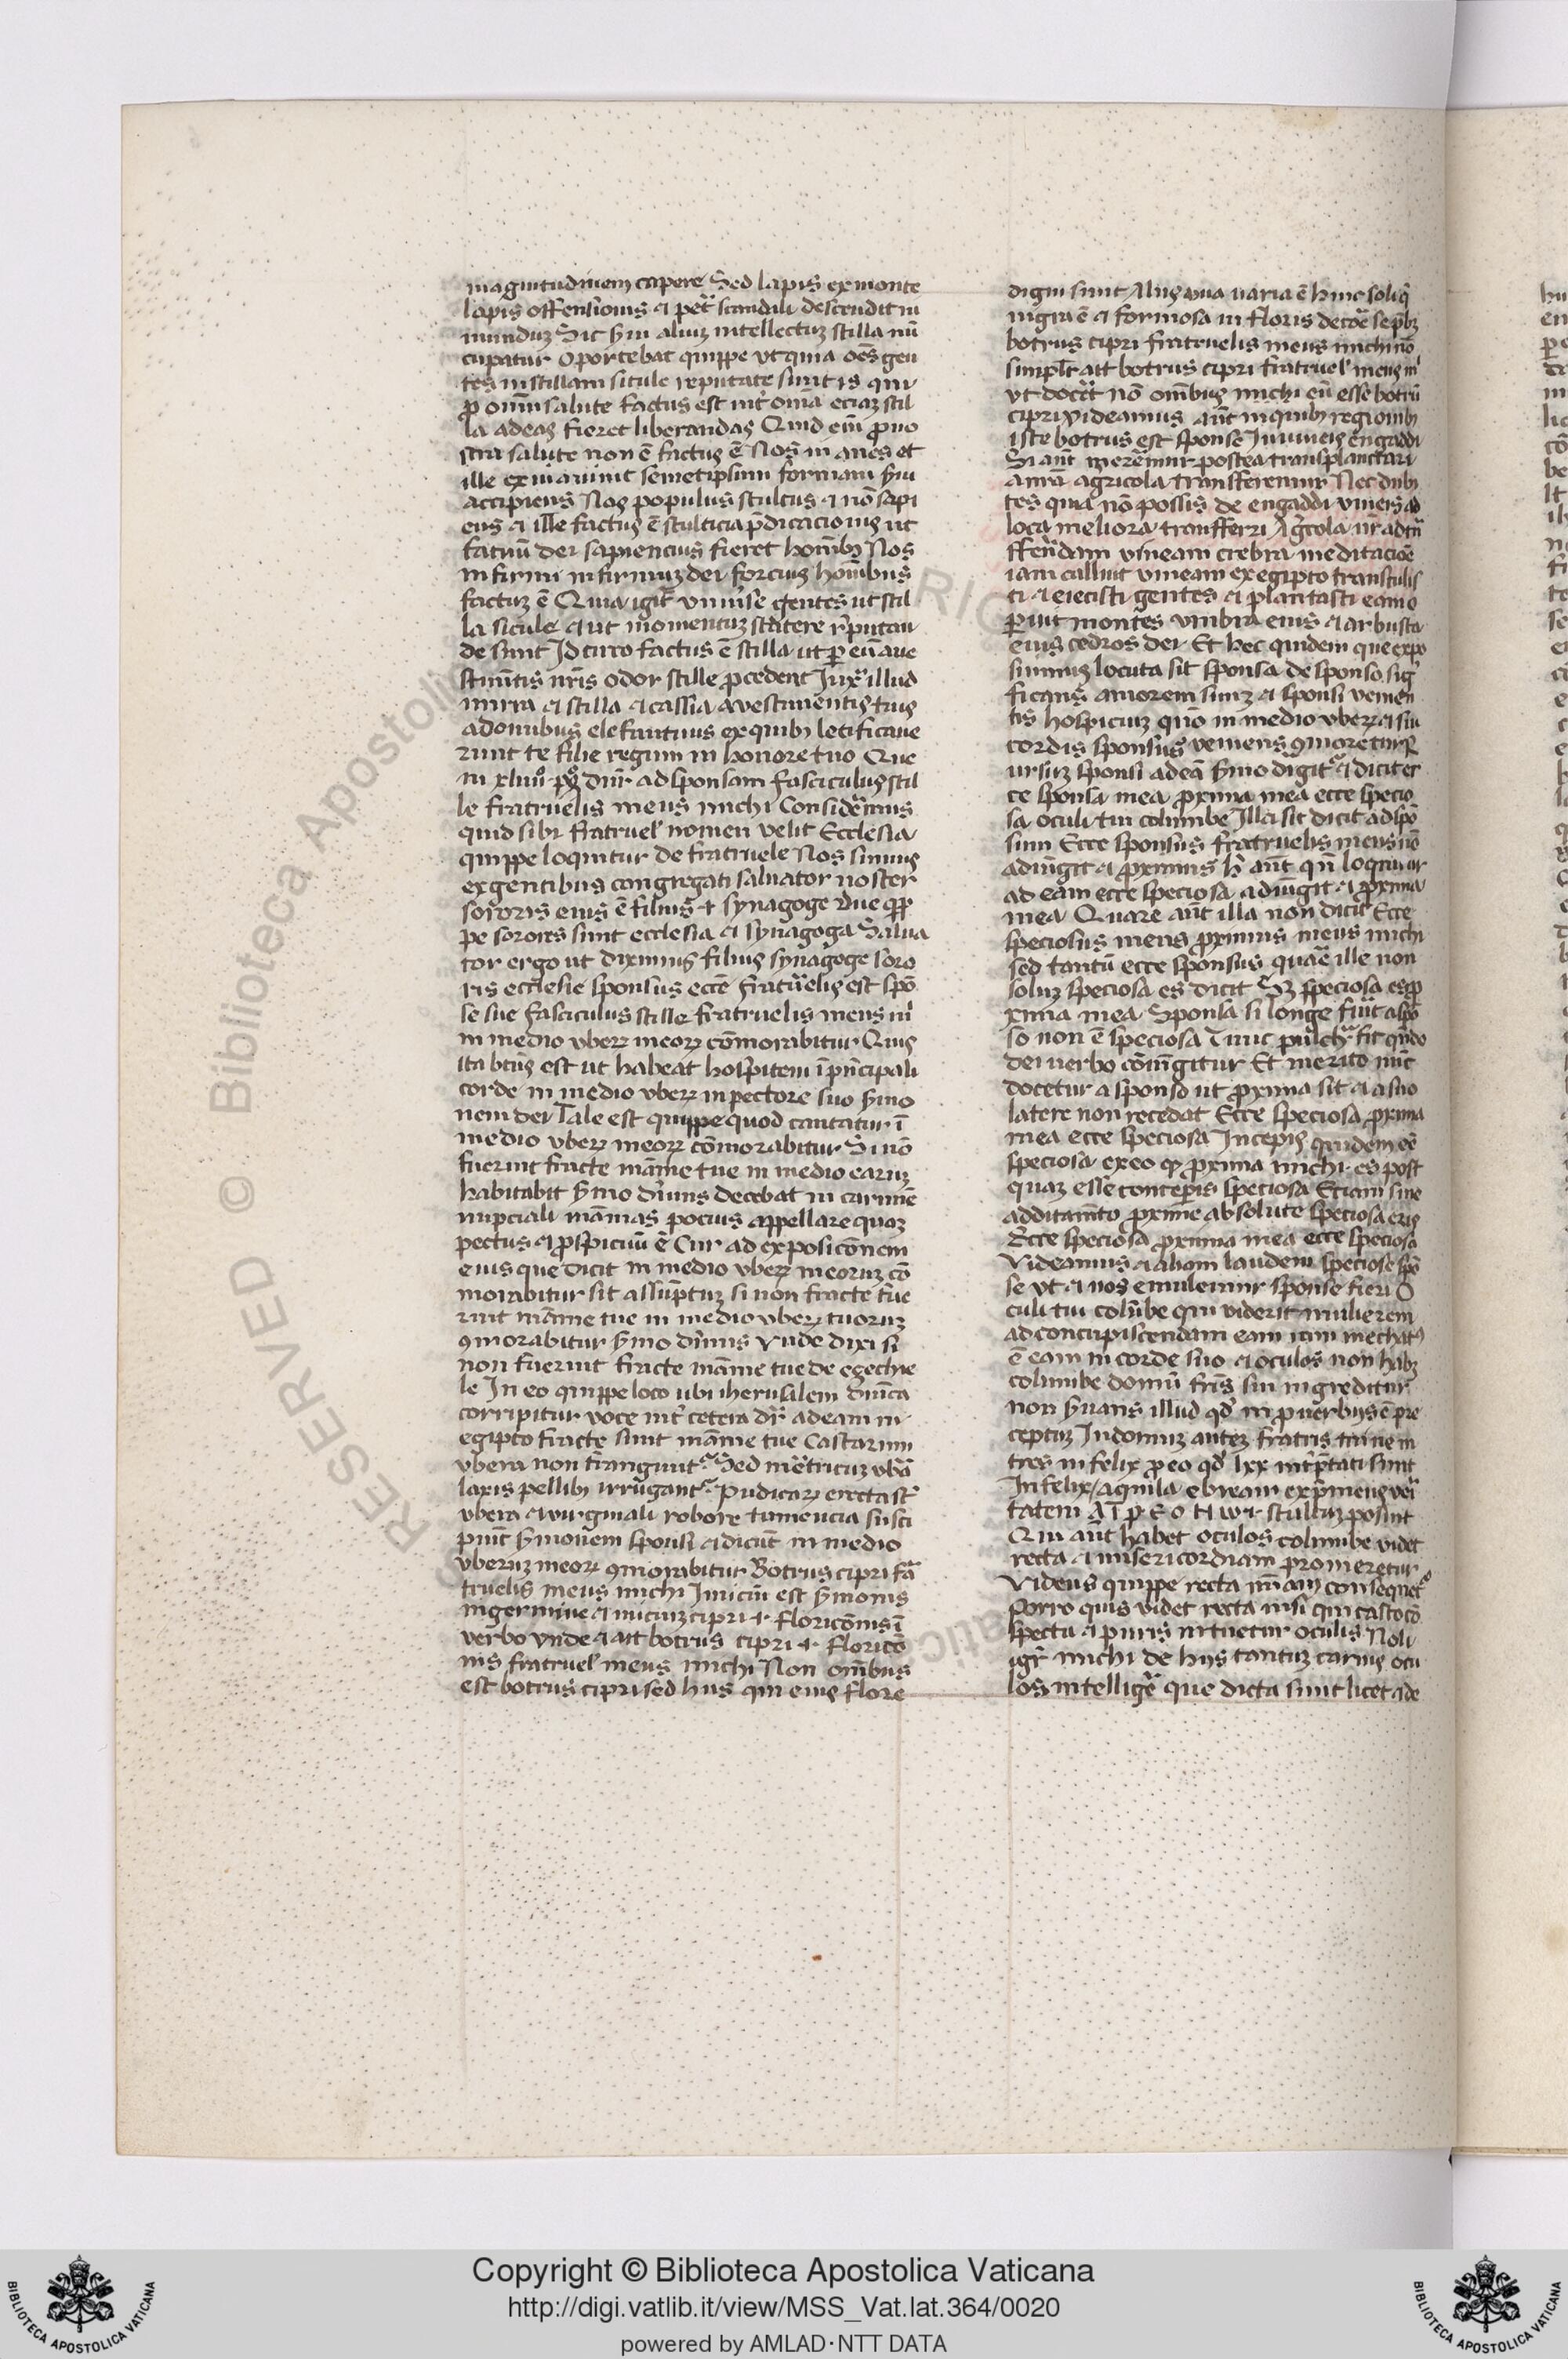 magnitudinem capere Sed lapis ex monte
lapis offensionis ⁊ pet̃ scandali descendit in
munduꝫ Sic ẜm aliuꝫ intellectuꝫ stilla nũ
cupatur Oportebat quippe ut quia oẽs gen
tes in stillam situle reputate sunt is qui
ꝓ oĩm salute factus est int̃ om̃ia eciaꝫ stil
la ad eas fieret liberandas Quid eĩ ꝓ no
stra salute non ẽ factus ẽ Nos inanes et
ille exinaniuit semetipsum formam ẜui
accipiens Nos populus stultus ⁊ nõ sapi
ens ⁊ ille factus ẽ stulticia p̃dicacionis ut
fatuũ dei sapiencius fieret homĩbꝫ Nos
infirmi infirmuꝫ dei forcius homĩbus
factuꝫ ẽ Quia igit̃ uniũse gentes ut stil
la situle ⁊ ut momentuꝫ statere r̃putan
de sunt Idcirco factus ẽ stilla ut ꝑ eũ a ue
stimẽtis nr̃is odor stille ꝓcederet Iux̃ illud
mirra ⁊ stilla ⁊ cassia a vestimentis tuis
a domibus elefantinis ex quibꝫ letificaue
runt te filie regum in honore tuo Que
in xliiiiᵒ pˢᵒ dñr ad sponsam fasciculus stil
le fratruelis meus michi Consid̃emus
quid sibi fratruel̃ nomen velit Ecclesia
quippe loquitur de fratruele Nos sumus
ex gentibus congregati saluator noster
sororis eius ẽ filius .i. synagoge due qͥp
pe sorores sunt ecclesia ⁊ synagoga Salua
tor ergo ut diximus filius synagoge soro
ris ecclesie sponsus eccẽ fratũelis est spõ
se sue fasciculus stille fratruelis meus m̃
in medio vberꝝ meoꝝ cõmorabitur Quis
ita btũs est ut habeat hospitem ĩ pñcipali
corde in medio vberꝝ in pectore suo ẜmo
nem dei Tale est quippe quod cantatur ĩ
medio vberꝝ meoꝝ cõmorabitur Si nõ
fuerint fracte mãme tue in medio earuꝫ
habitabit ẜmo diuĩus decebat in carmĩe
nupciali mãmas pocius appellare quaꝫ
pectus ⁊ ꝓspicuũ ẽ Cur ad exposicõnem
eius que dicit in medio vberꝝ meoruꝫ cõ
morabitur sit assũptuꝫ si non fracte fue
rint mãme tue in medio vberꝝ tuoruꝫ
ꝯmorabitur ẜmo diuĩus Vnde dixi si
non fuerint fracte mãme tue de ezechie
le In eo quippe loco ubi iherusalem diuĩa
corripitur voce int̃ cetera dr̃ ad eam in
egipto fracte sunt mãme tue Castarum
vbera non frangunt̃ Sed mer̃tricuꝫ vb̃a
laxis pellibꝫ irrugant̃ Pudicarꝝ erecta st̃
vbera ⁊ uirginali robore tumencia susci
piũt ẜmonem sponsi ⁊ dicũt in medio
vberuꝫ meoꝝ ꝯmorabitur Botrus cipri fã
truelis meus michi Iniciũ est ẜmonis
in germine ⁊ iniciuꝫ cipri .i. floricõnis ĩ
verbo vnde ⁊ ait botrus cipri .i. floricõ
nis fratruel̃ meus michi Non om̃ibus
est botrus cipri sed hiis qui eius flore
digni sunt Aliis uua uaria ẽ huic soli q̃
nigra ẽ ⁊ formosa in floris decor̃e
botrus cipri fratruelis meus michi nõ
simplr̃ ait botrus cipri fratruel̃ meus m̃
vt docer̃t nõ om̃ibus michi eũ esse botrũ
cipri videamus aũt in quibꝫ regionibꝫ
iste botrus est sponse In uineis engaddi
Si aũt merẽmur postea transplantari
a nr̃a agricola transferemur Nec dubi
tes quia nõ possis de engaddi vineis ad
loca meliora transferri Ag̃cola nr̃ ad trã
ffer̃ndam vineam crebra meditacõe
iam calluit vineam ex egipto transtulis
ti ⁊ eiecisti gentes ⁊ plantasti eam o
ꝑuit montes vmbra eius ⁊ arbusta
eius cedros dei Et hec quidem que expo
suimus locuta sit sponsa de sponso sig̃
ficans amorem suuꝫ ⁊ sponsi venien
tis hospiciuꝫ quõ in medio vberꝝ ⁊ sui
cordis sponsus veniens ꝯmoretur R
ursuꝫ sponsi ad eã ẜmo digit̃ ⁊ dicit ec
ce sponsa mea ꝓxima mea ecce specio
sa oculi tui columbe Illa sic dicit ad spõ
sum Ecce sponsus fratruelis meus nõ
adiũgit ⁊ ꝓximus h̃ aũt qñ loquitur
ad eam ecce speciosa adiũgit ⁊ ꝓxima
mea Quare aũt illa non dicit Ecce
speciosus meus ꝓximus meus michi
sed tantũ ecce sponsus quar̃e ille non
soluꝫ speciosa es dicit Sꝫ speciosa es ꝓ
xima mea Sponsa si longe fũit a spõ
so non ẽ speciosa tunc pulchr̃ fit qñdo
dei uerbo cõiũgitur Et merito nũc
docetur a sponso ut ꝓxima sit ⁊ a suo
latere non recedat Ecce speciosa ꝓxima
mea ecce speciosa Incepis quidem eẽ
speciosa ex eo ꝙ ꝓxima michi es post
quaꝫ esse conceperis speciosa Etiam sine
additamẽto ꝓxime absolute speciosa eris
Ecce speciosa ꝓxima mea ecce speciosa
Videamus ⁊ aliam laudem speciose spõ
se vt ⁊ nos emulemur sponse fieri O
culi tui colũbe qui viderit mulierem
ad concupiscendam eam iam mechatꝰ
ẽ eam in corde suo ⁊ oculos non habꝫ
columbe domũ fr̃is sui ingreditur
non ẜuans illud qd̃ in ꝓuerbiis ẽ pre
ceptuꝫ In domuꝫ auteꝫ fratris tui ne in
tres infelix ꝓ eo qd̃ lxx int̃p̃tati sunt
Infelix / aquila ebream exp̃mens veri
tatem posuit
Qui aũt habet oculos columbe videt
recta ⁊ misericordiam promeretur
Videns quippe recta mĩam consequetᷣ
Porro quis videt recta nisi qui casto cõ
spectu ⁊ puris intuetur oculis Noli
igr̃ michi de hiis tantuꝫ carnis ocu
los intellige que dicta sunt licet ⁊ de
Copyright © Biblioteca Apostolica Vaticana
http://digi.vatlib.it/view/MSS_Vat.lat.364/0020
powered by AMLAD·NTT DATA
BIBLIOTECA APOSTOLICA VATICANA
BIBLIOTECA APOSTOLICA VATICANA